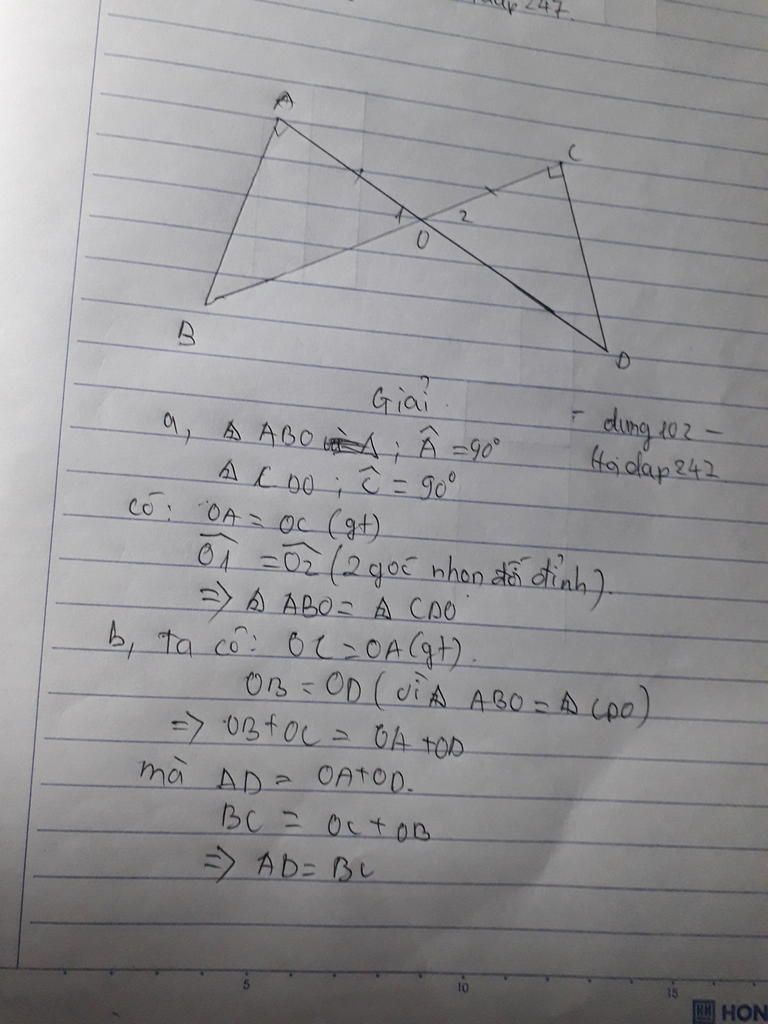 đap 247.
A
C
1
2
O
B
D
Giải.
= dung102 –
Hoidap247
a, Δ ABO ; Â = 90°
Δ CDO ; Ĉ = 90°
có: OA = OC (gt)
Ô1 = Ô2 (2 góc nhọn đối đỉnh).
=> Δ ABO = Δ CDO
b, ta có: OC = OA (gt).
OB = OD (vì Δ ABO = Δ CDO)
=> OB + OC = OA + OD
mà AD = OA + OD.
BC = OC + OB
=> AD = BC
5 10 15
HON